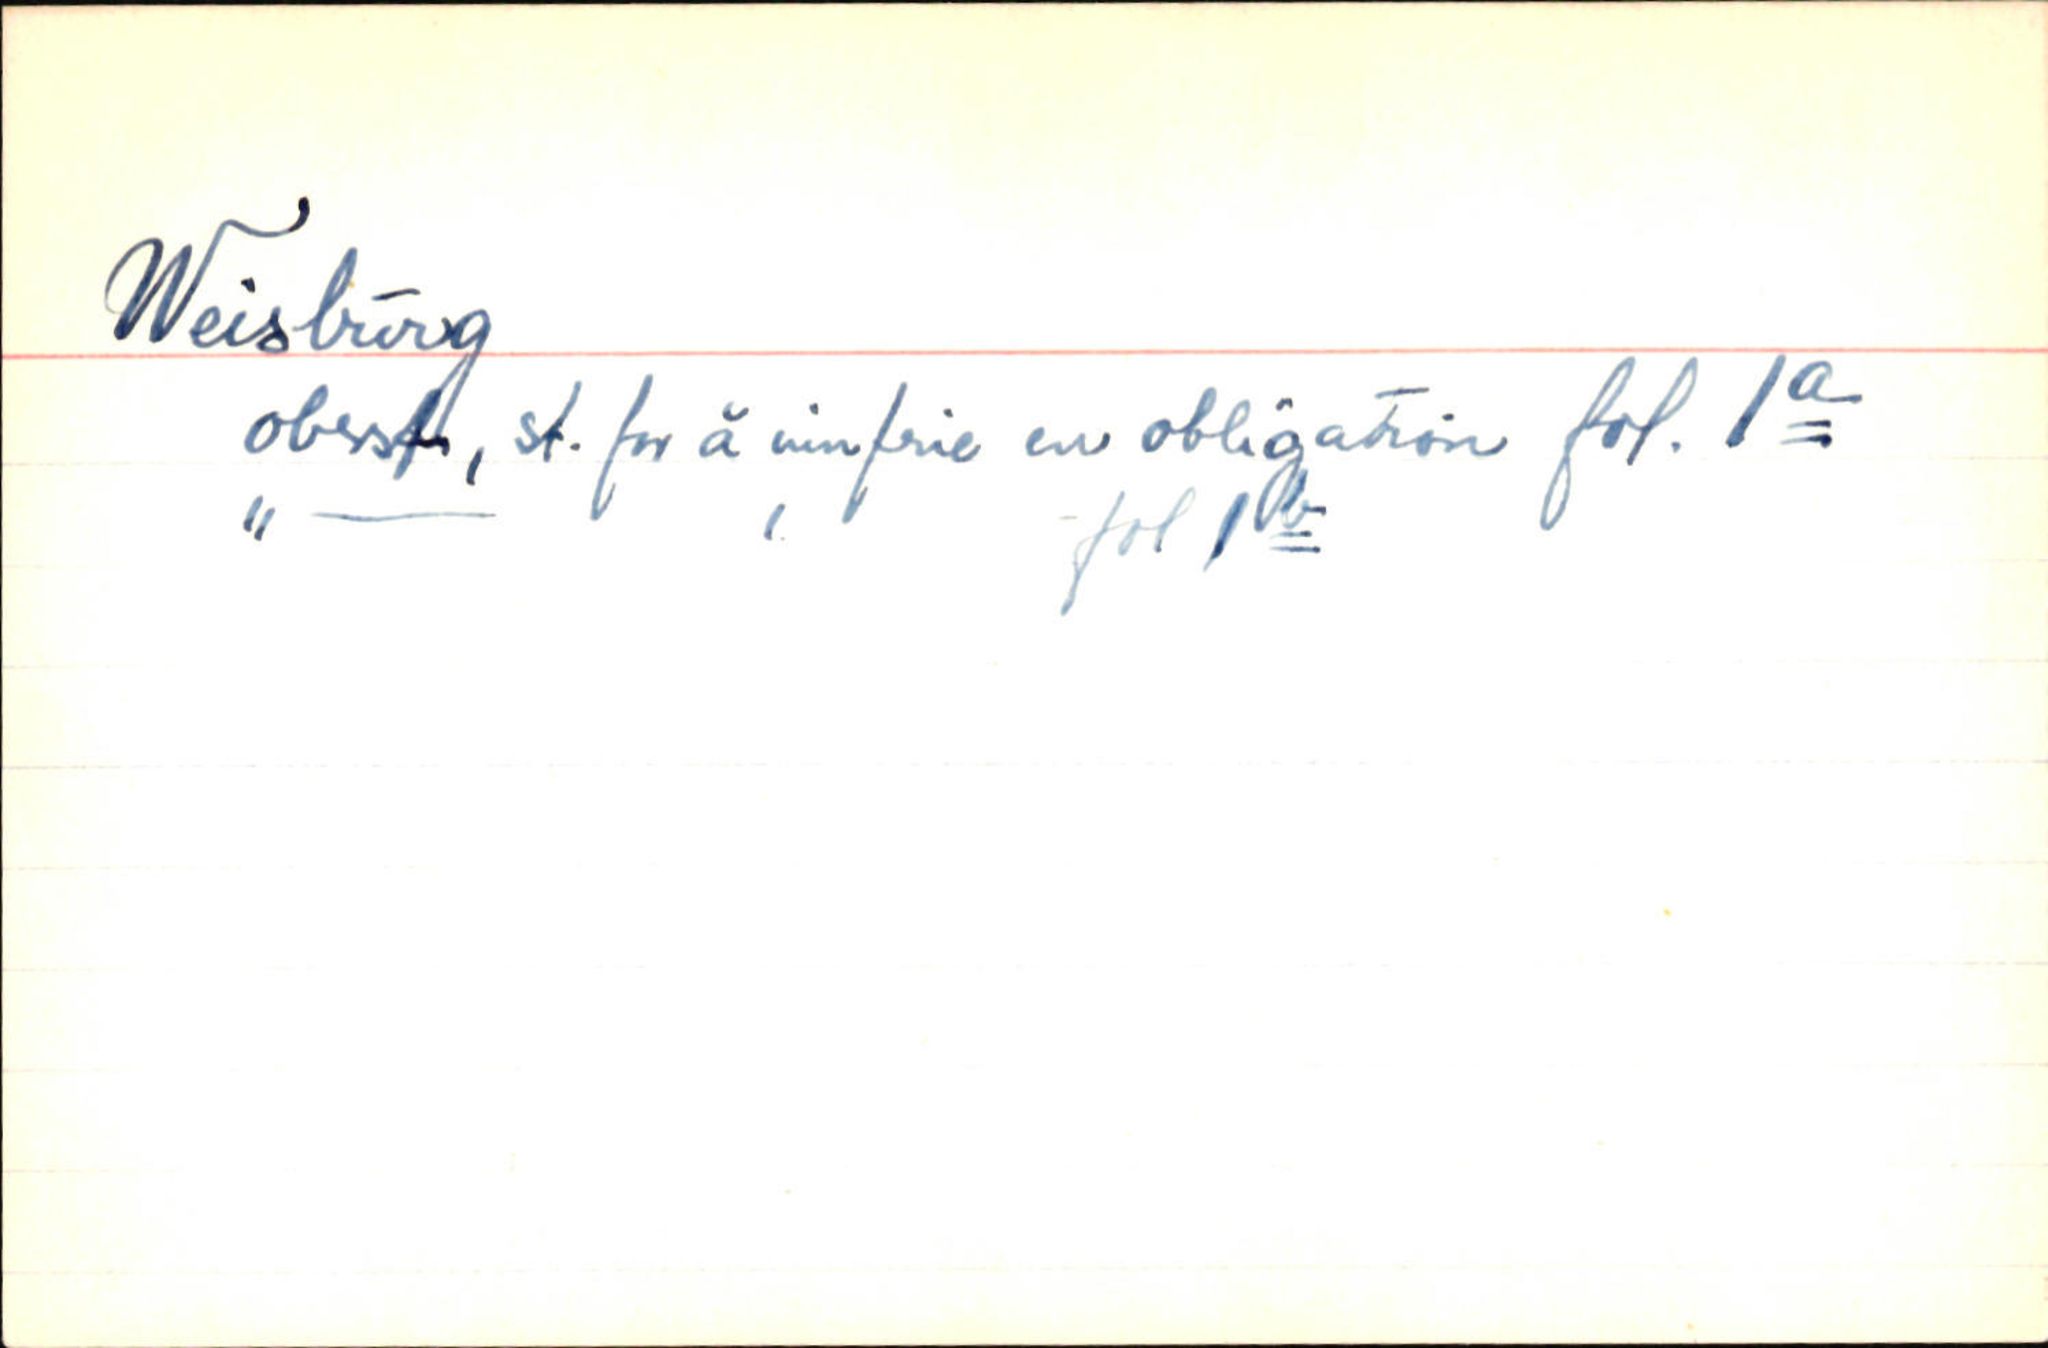 Weisburg
oberst, st. for å innfrie en obligation fol. 1a
" — , fol 1b